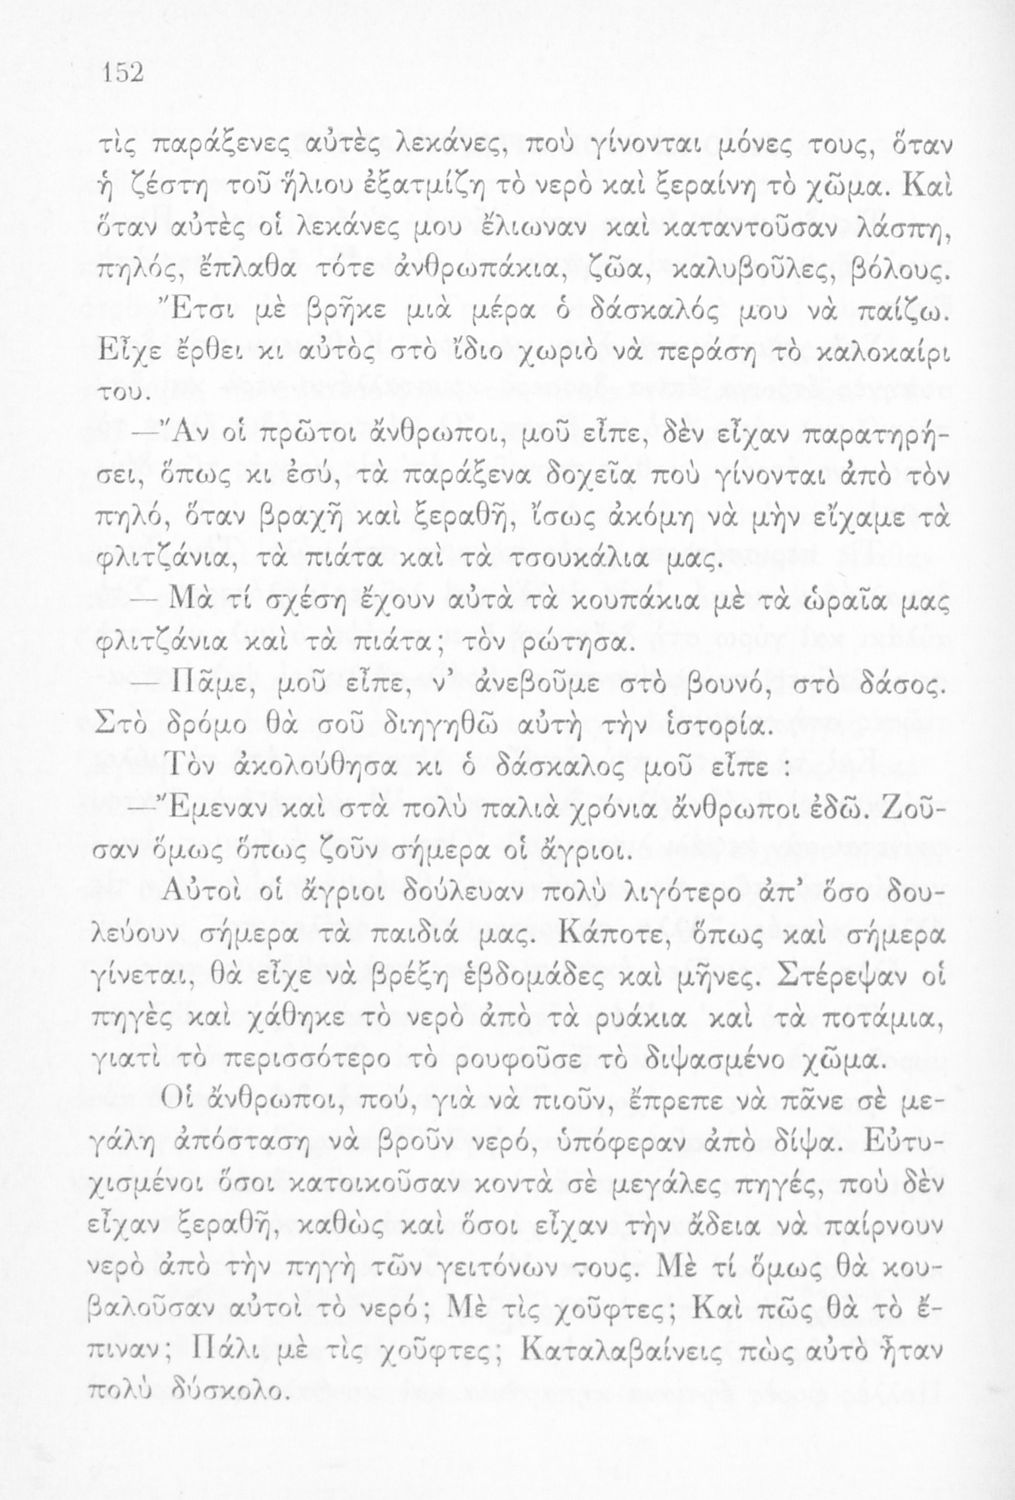 152
τὶς παράξενες αὐτὲς λεκάνες, ποὺ γίνονται μόνες τους, ὅταν
ἡ ζέστη τοῦ ἥλιου ἐξατμίζη τὸ νερὸ καὶ ξεραίνη τὸ χῶμα. Καὶ
ὅταν αὐτὲς οἱ λεκάνες μου ἔλιωναν καὶ καταντοῦσαν λάσπη,
πηλός, ἔπλαθα τότε ἀνθρωπάκια, ζῶα, καλυβοῦλες, βόλους.
Ἔτσι μὲ βρῆκε μιὰ μέρα ὁ δάσκαλός μου νὰ παίζω.
Εἶχε ἔρθει κι αὐτὸς στὸ ἴδιο χωριὸ νὰ περάση τὸ καλοκαίρι
του.
—Ἂν οἱ πρῶτοι ἄνθρωποι, μοῦ εἶπε, δὲν εἶχαν παρατηρή-
σει, ὅπως κι ἐσύ, τὰ παράξενα δοχεῖα ποὺ γίνονται ἀπὸ τὸν
πηλό, ὅταν βραχῆ καὶ ξεραθῆ, ἴσως ἀκόμη νὰ μὴν εἴχαμε τὰ
φλιτζάνια, τὰ πιάτα καὶ τὰ τσουκάλια μας.
— Μὰ τί σχέση ἔχουν αὐτὰ τὰ κουπάκια μὲ τὰ ὡραῖα μας
φλιτζάνια καὶ τὰ πιάτα; τὸν ρώτησα.
— Πᾶμε, μοῦ εἶπε, ν’ ἀνεβοῦμε στὸ βουνό, στὸ δάσος.
Στὸ δρόμο θὰ σοῦ διηγηθῶ αὐτὴ τὴν ἱστορία.
Τὸν ἀκολούθησα κι ὁ δάσκαλος μοῦ εἶπε :
—Ἔμεναν καὶ στὰ πολὺ παλιὰ χρόνια ἄνθρωποι ἐδῶ. Ζοῦ-
σαν ὅμως ὅπως ζοῦν σήμερα οἱ ἄγριοι.
Αὐτοὶ οἱ ἄγριοι δούλευαν πολὺ λιγότερο ἀπ’ ὅσο δου-
λεύουν σήμερα τὰ παιδιά μας. Κάποτε, ὅπως καὶ σήμερα
γίνεται, θὰ εἶχε νὰ βρέξη ἑβδομάδες καὶ μῆνες. Στέρεψαν οἱ
πηγὲς καὶ χάθηκε τὸ νερὸ ἀπὸ τὰ ρυάκια καὶ τὰ ποτάμια,
γιατὶ τὸ περισσότερο τὸ ρουφοῦσε τὸ διψασμένο χῶμα.
Οἱ ἄνθρωποι, πού, γιὰ νὰ πιοῦν, ἔπρεπε νὰ πᾶνε σὲ με-
γάλη ἀπόσταση νὰ βροῦν νερό, ὑπόφεραν ἀπὸ δίψα. Εὐτυ-
χισμένοι ὅσοι κατοικοῦσαν κοντὰ σὲ μεγάλες πηγές, ποὺ δὲν
εἶχαν ξεραθῆ, καθὼς καὶ ὅσοι εἶχαν τὴν ἄδεια νὰ παίρνουν
νερὸ ἀπὸ τὴν πηγὴ τῶν γειτόνων τους. Μὲ τί ὅμως θὰ κου-
βαλοῦσαν αὐτοὶ τὸ νερό; Μὲ τὶς χοῦφτες; Καὶ πῶς θὰ τὸ ἔ-
πιναν; Πάλι μὲ τὶς χοῦφτες; Καταλαβαίνεις πὼς αὐτὸ ἦταν
πολὺ δύσκολο.